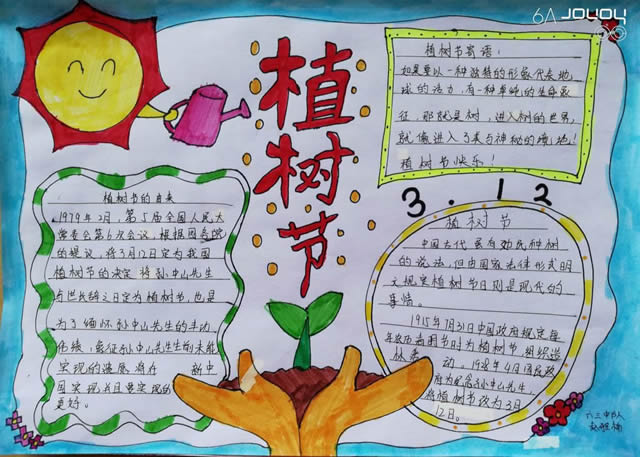 植树节
植树节寄语：
如果要以一种独特的形象代表地
球的活力，有一种单纯的生命象
征，那就是树，进入树的世界，
就像进入了美与神秘的境地！
植树节快乐！
3.12
植树节的由来
1979年2月，第5届全国人民大
常委会第6次会议，根据国务院
的提议，将3月12日定为我国
植树节的决定 将孙中山先生
与世长辞之日定为植树节，也是
为了缅怀孙中山先生的丰功
伟绩，象征孙中山先生生前未能
实现的遗愿将在 新中
国实现并且要实现的
更好。
植树节
中国古代就有劝民种树
的说法，但由国家法律形式明
文规定植树节日则是现代的
事情。
1915年7月31日中国政府规定每
年农历清明节时为植树节，组织造
林 动。1928年4月国民政
府为纪念孙中山先生，
将植树节改为3月
12日。
JOYOY